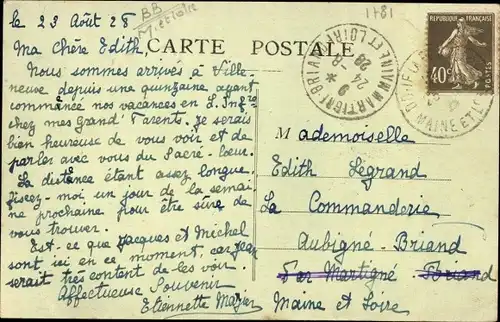 le 23 Août 28
1781
CARTE POSTALE
Ma Chère Edith,
Nous sommes arrivés à Ville-
neuve depuis une quinzaine ayant
commencé nos vacances en L. Infre
chez mes Grand' Parents. Je serais
bien heureuse de vous voir et de
parler avec vous du Sacré-Cœur.
La distance étant assez longue
fixez-moi un jour de la semai
ne prochaine pour être sûre de
vous trouver.
Est-ce que Jacques et Michel
sont ici en ce moment, car Jean
serait très content de les voir.
Affectueuse Souvenir
Etiennette
RÉPUBLIQUE FRANÇAISE
40c
MARTIGNE-BRIAND
24 -8
28
MAINE ET LOIRE
Mademoiselle
Edith Legrand
La Commanderie
Aubigné-Briand
Par Martigné Briand
Maine et Loire